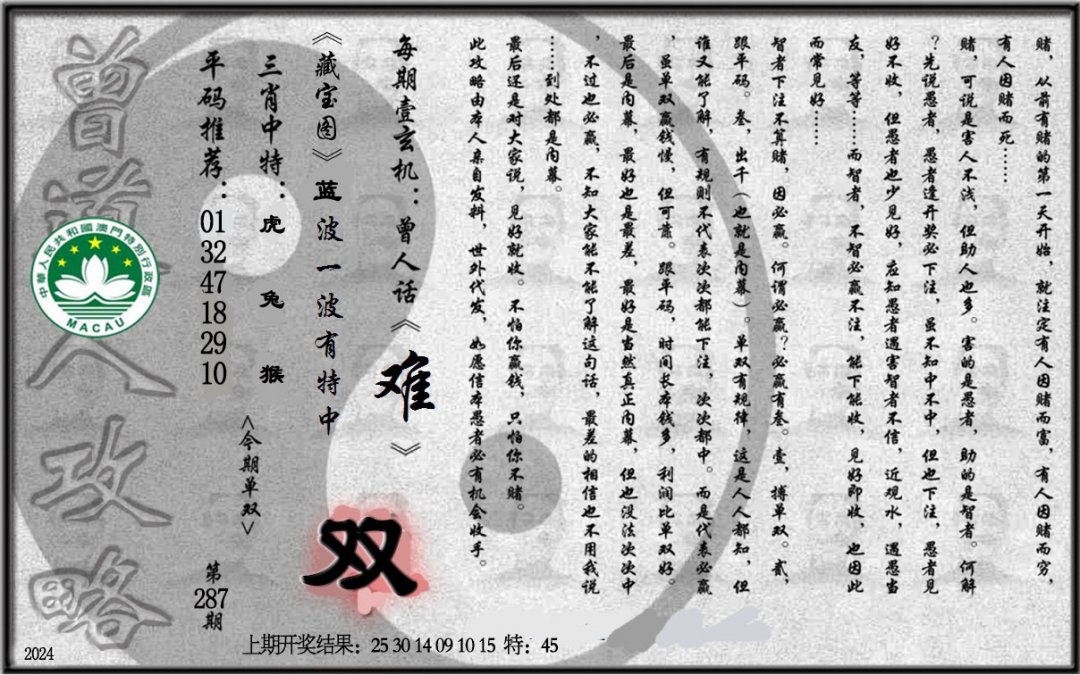 赌，从前有赌的第一天开始，就注定有人因赌而富，有人因赌而穷，
有人因赌而死……
赌，可说是害人不浅，但助人也多。害的是愚者，助的是智者。何解
？先说愚者，愚者逢开奖必下注，虽不知中不中，但也下注，愚者见
好不收，但愚者也少见好，应知愚者遇害智者不信，近观水，遇愚当
友，等等……而智者，不智必赢不注，能下能收，见好即收，也因此
而常见好……
智者下注不算赌，因必赢。何谓必赢？必赢有叁。壹，搏单双。贰，
跟平码。叁，出千（也就是内幕）。单双有规律，这是人人都知，但
谁又能了解，有规则不代表次次都能下注，次次都中。而是代表必赢
，虽单双赢钱慢，但可靠。跟平码，时间长本钱多，利润比单双好。
最后是内幕，最好也是最差，最好是当然真正内幕，但也没法次次中
，不过也必赢，不知大家能不能了解这句话，最差的相信也不用我说
……到处都是内幕。
最后还是对大家说，见好就收。不怕你赢钱，只怕你不赌。
此攻略由本人亲自发料，世外代发，如愿信本愚者必有机会收手。
每期壹玄机：曾人话《难》
《藏宝图》蓝波一波有特中
双
三肖中特：虎兔猴
<今期单双>
平码推荐：01 32 47 18 29 10
第287期
曾道人攻略
中華人民共和國澳門特別行政區
MACAU
上期开奖结果：25 30 14 09 10 15 特：45
2024